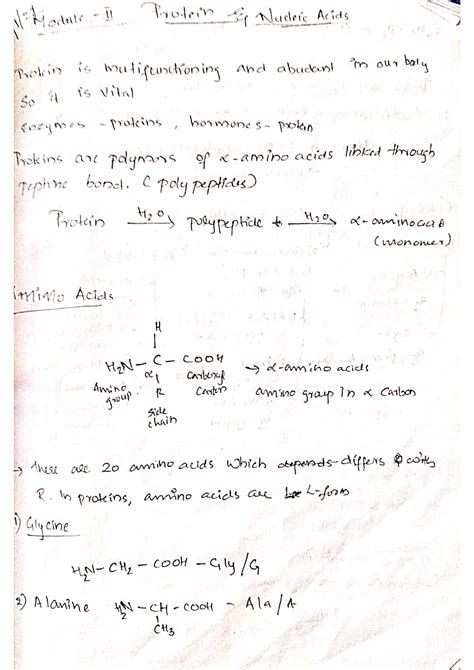 Module - II Protein & Nucleic Acids
Protein is mutifunctioning and abudant in our body
So it is Vital
enzymes - proteins, hormones - protein
Proteins are polymars of α-amino acids linked through
peptine bond. (polypeptides)
Protein H2O→ polypeptide to H2O→ α-aminoacid
(monomer)
Amino Acids
H
H2N - C - COOH → α-amino acids
Amino α | Carboxyl amino group in α Carbon
group R Carbon
side
chain
→ These are 20 amino acids which depends differs with
R. In proteins, amino acids are L-form
1) Glycine
H2N - CH2 - COOH - Gly/G
2) Alanine H2N - CH - COOH - Ala/A
CH3